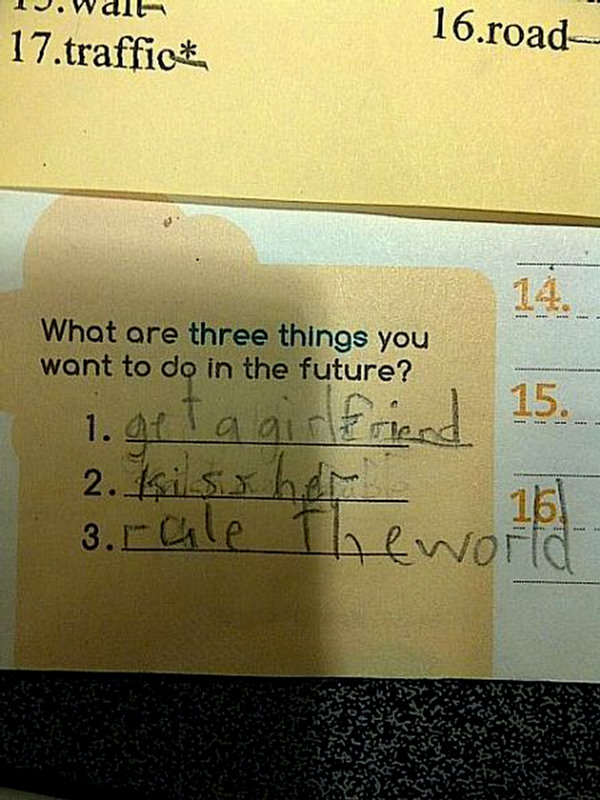 15.wait
16.road
17.traffic*
What are three things you
want to do in the future?
1. get a girlfriend
2. kiss her
3. rule the world
14.
15.
16.